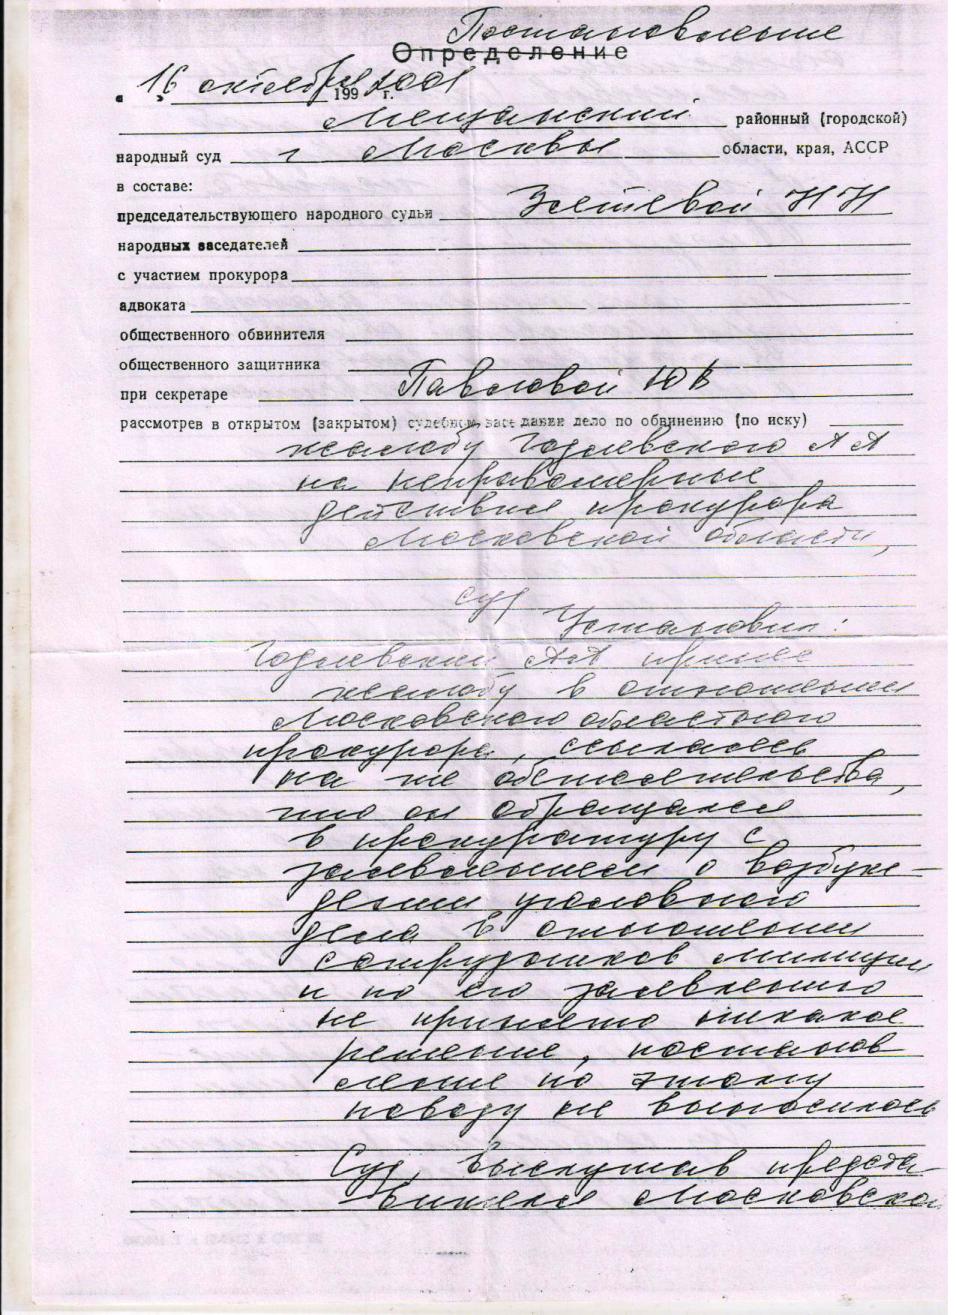 Постановление
Определение
« 16 » октября 199 г. 2001
Мещанский районный (городской)
народный суд г Москвы области, края, АССР
в составе:
председательствующего народного судьи Н Н
народных заседателей
с участием прокурора
адвоката
общественного обвинителя
общественного защитника
при секретаре Павловой Ю В
рассмотрев в открытом (закрытом) судебном заседании дело по обвинению (по иску)
жалобу Годлевского А А
на неправомерные
действия прокурора
Московской области,
суд
Установил:
Годлевский А А принес
жалобу в отношении
Московского областного
прокурора, ссылаясь
на те обстоятельства,
что он обращался
в прокуратуру с
заявлением о возбуж-
дении уголовного
дела в отношении
сотрудников милиции
и по его заявлению
не принято никакое
решение, постанов
ление по этому
поводу не выносилось
Суд, выслушав предста
вителя Московской